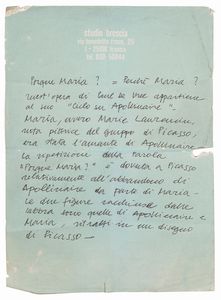 studio brescia
via benedetto croce, 29
"Porque Maria?" = Perché Maria?
quest'opera di Emilio Isgrò appartiene
al suo "ciclo su Apollinaire".
Maria, ovvero Marie Laurencin,
unica pittrice del gruppo di Picasso,
era stata l'amante di Apollinaire
la ripetizione della parola
"Porque Maria?" è dovuta a Picasso
relativamente all'abbandono di
Apollinaire da parte di Maria -
le due figure racchiuse dalle
sono quelle di Apollinaire e
Maria, ritratti in un disegno
di Picasso -